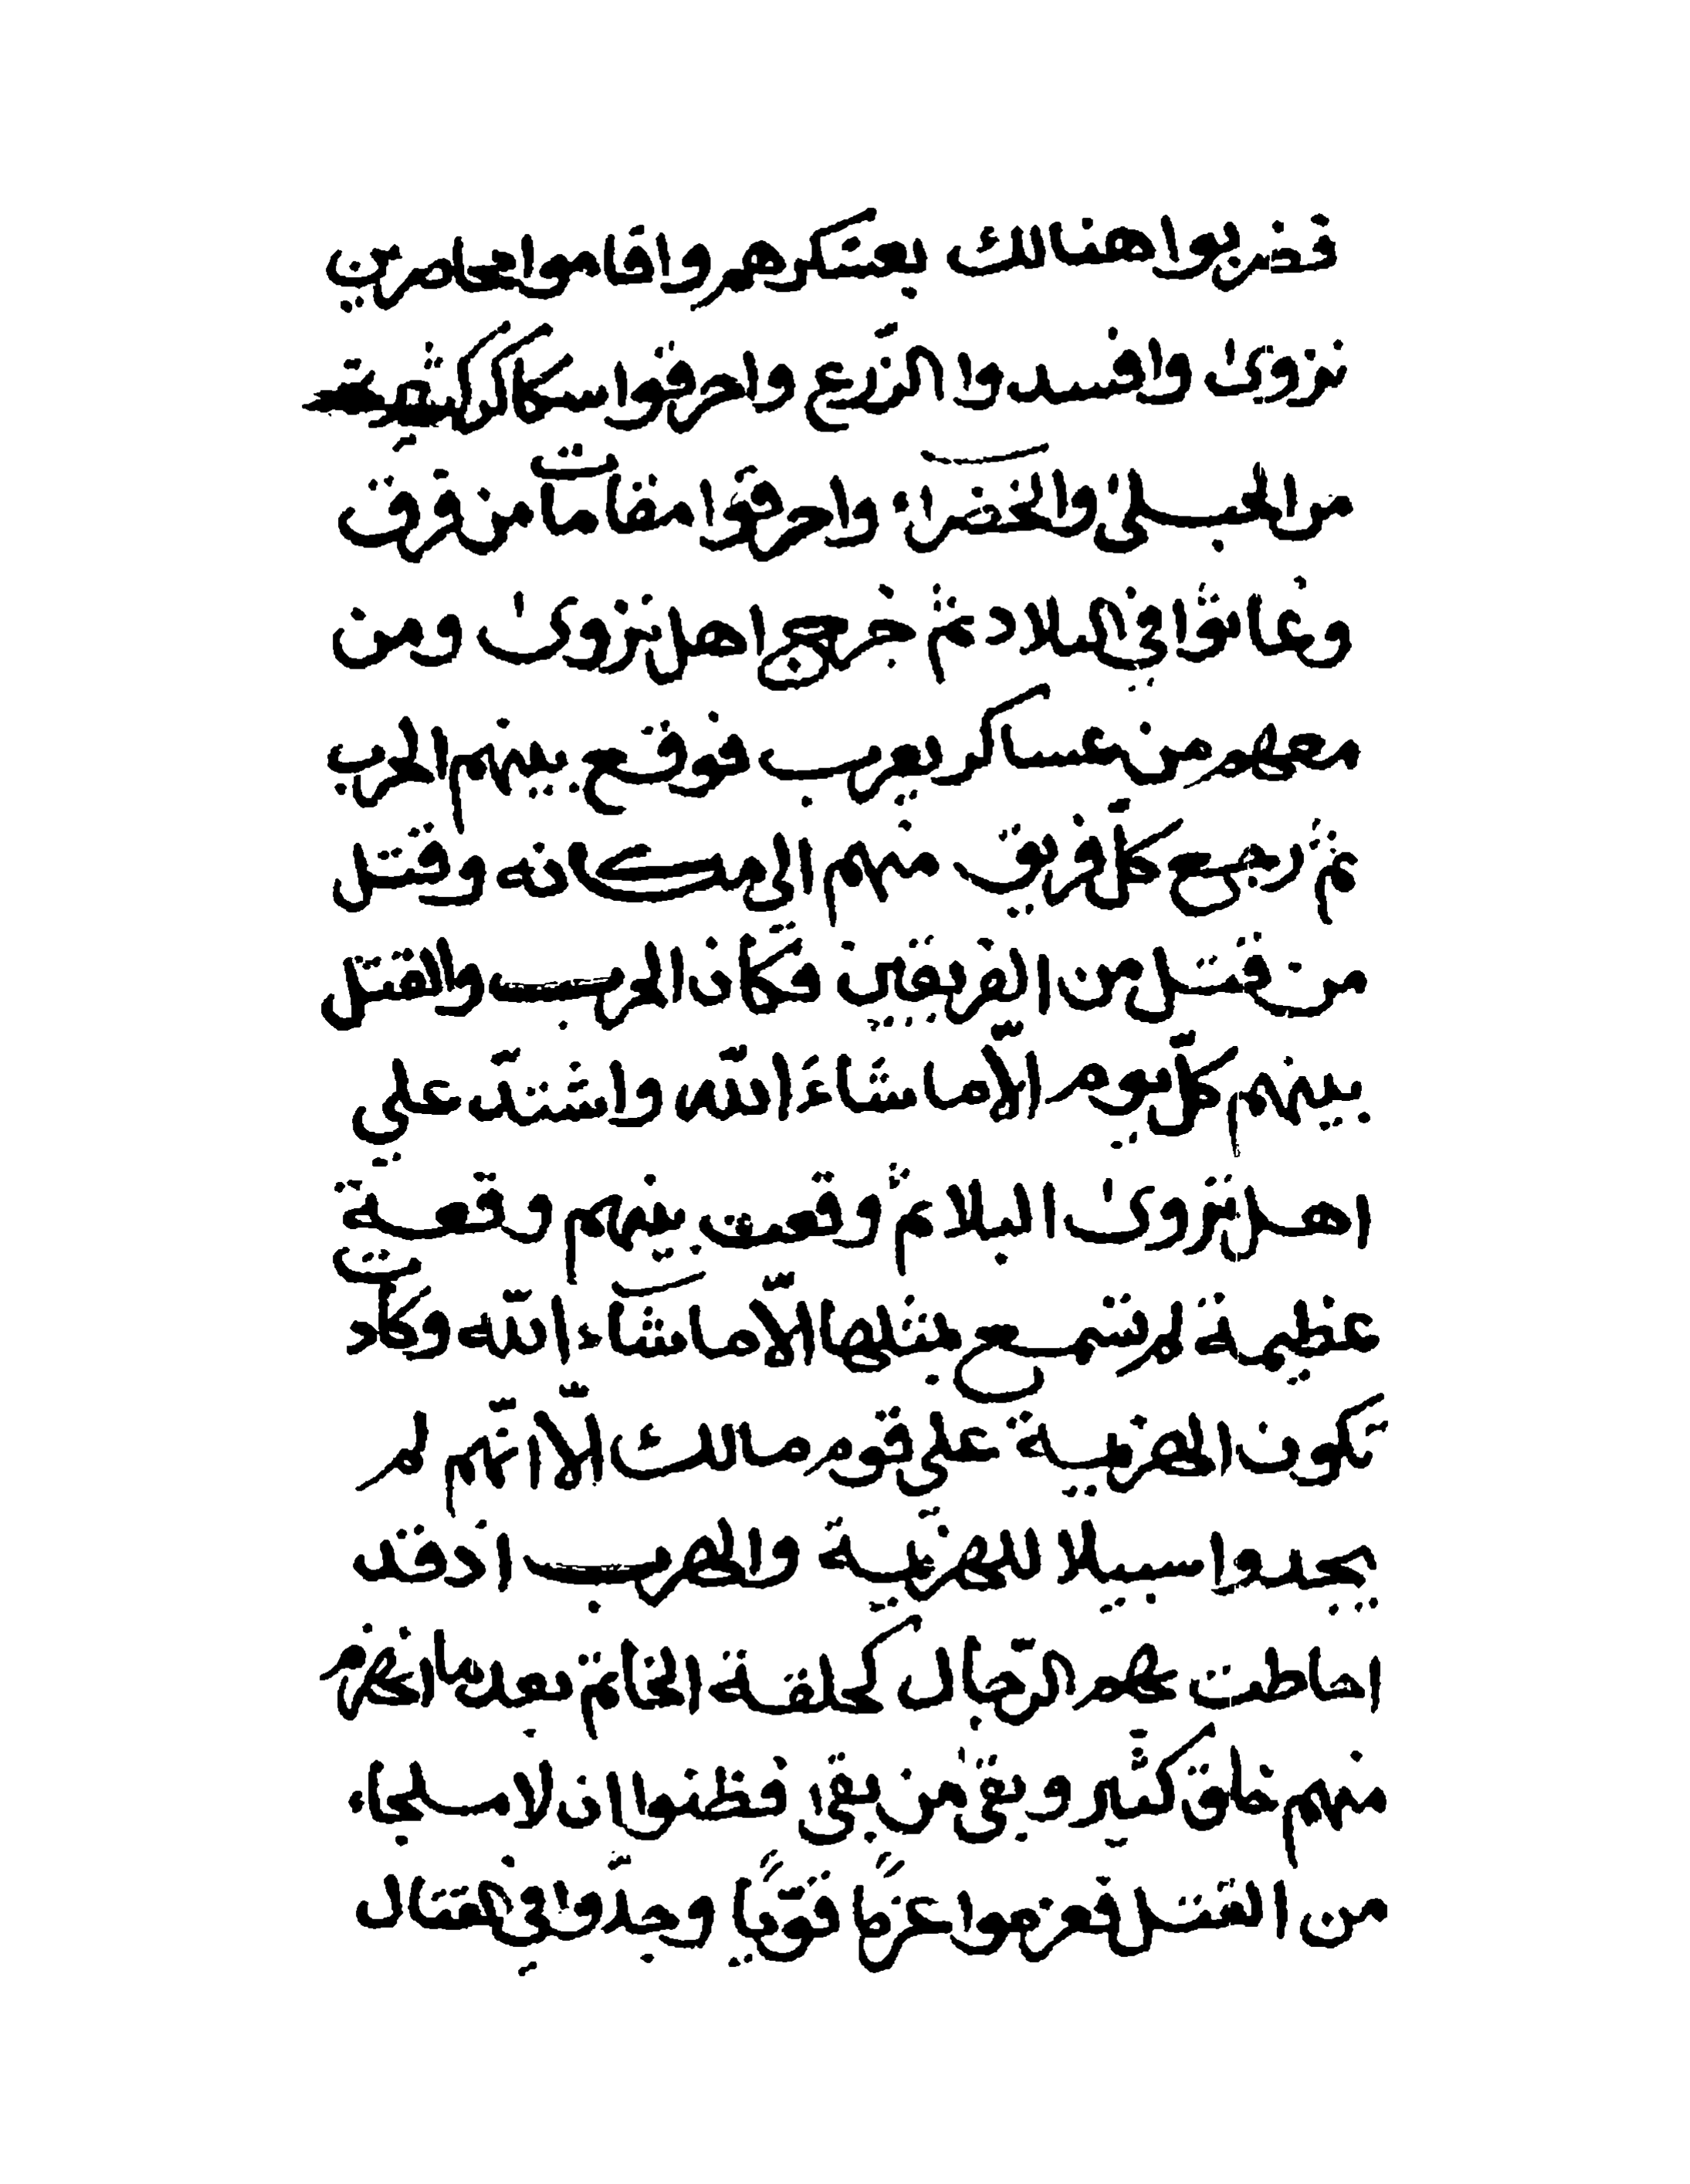 فضربوا هنالك بعسكرهم واقاموا محاصرين
نزوىٰ وافسدوا الزّرع واحرقوا سكاكر كثيرة
من الحبلىٰ والخضراء واحرقوا مقامات من فرق
وعاثوا في البلاد ثم خرج اهل نزوىٰ ومن
معهم من عساكر يعرب فوقع بينهم الحرب
ثم رجع كلّ فريق منهم الى مكانه وقتل
من قتل من الفريقين فكان الحرب والقتل
بينهم كلّ يوم الّا ما شاءَ اللّه واشتدّ علي
اهل نزوىٰ البلا ثم وقعت بينهم وقعة
عظيمة لم تسمع بمثلها الّا ما شاء اللّه وكادت
تكون الهزيمة على قوم مالك الّا انّهم لم
يجدوا سبيلا للهزيمة والهرب اذ قد
احاطت بهم الرّجال كحلقة الخاتم بعد ما انهزم
منهم خلق كثير وبقىٰ من بقى فظنوا ان لا ملجاء
من القتل فعزموا عزمًا قويًّا وجدّوا في القتال